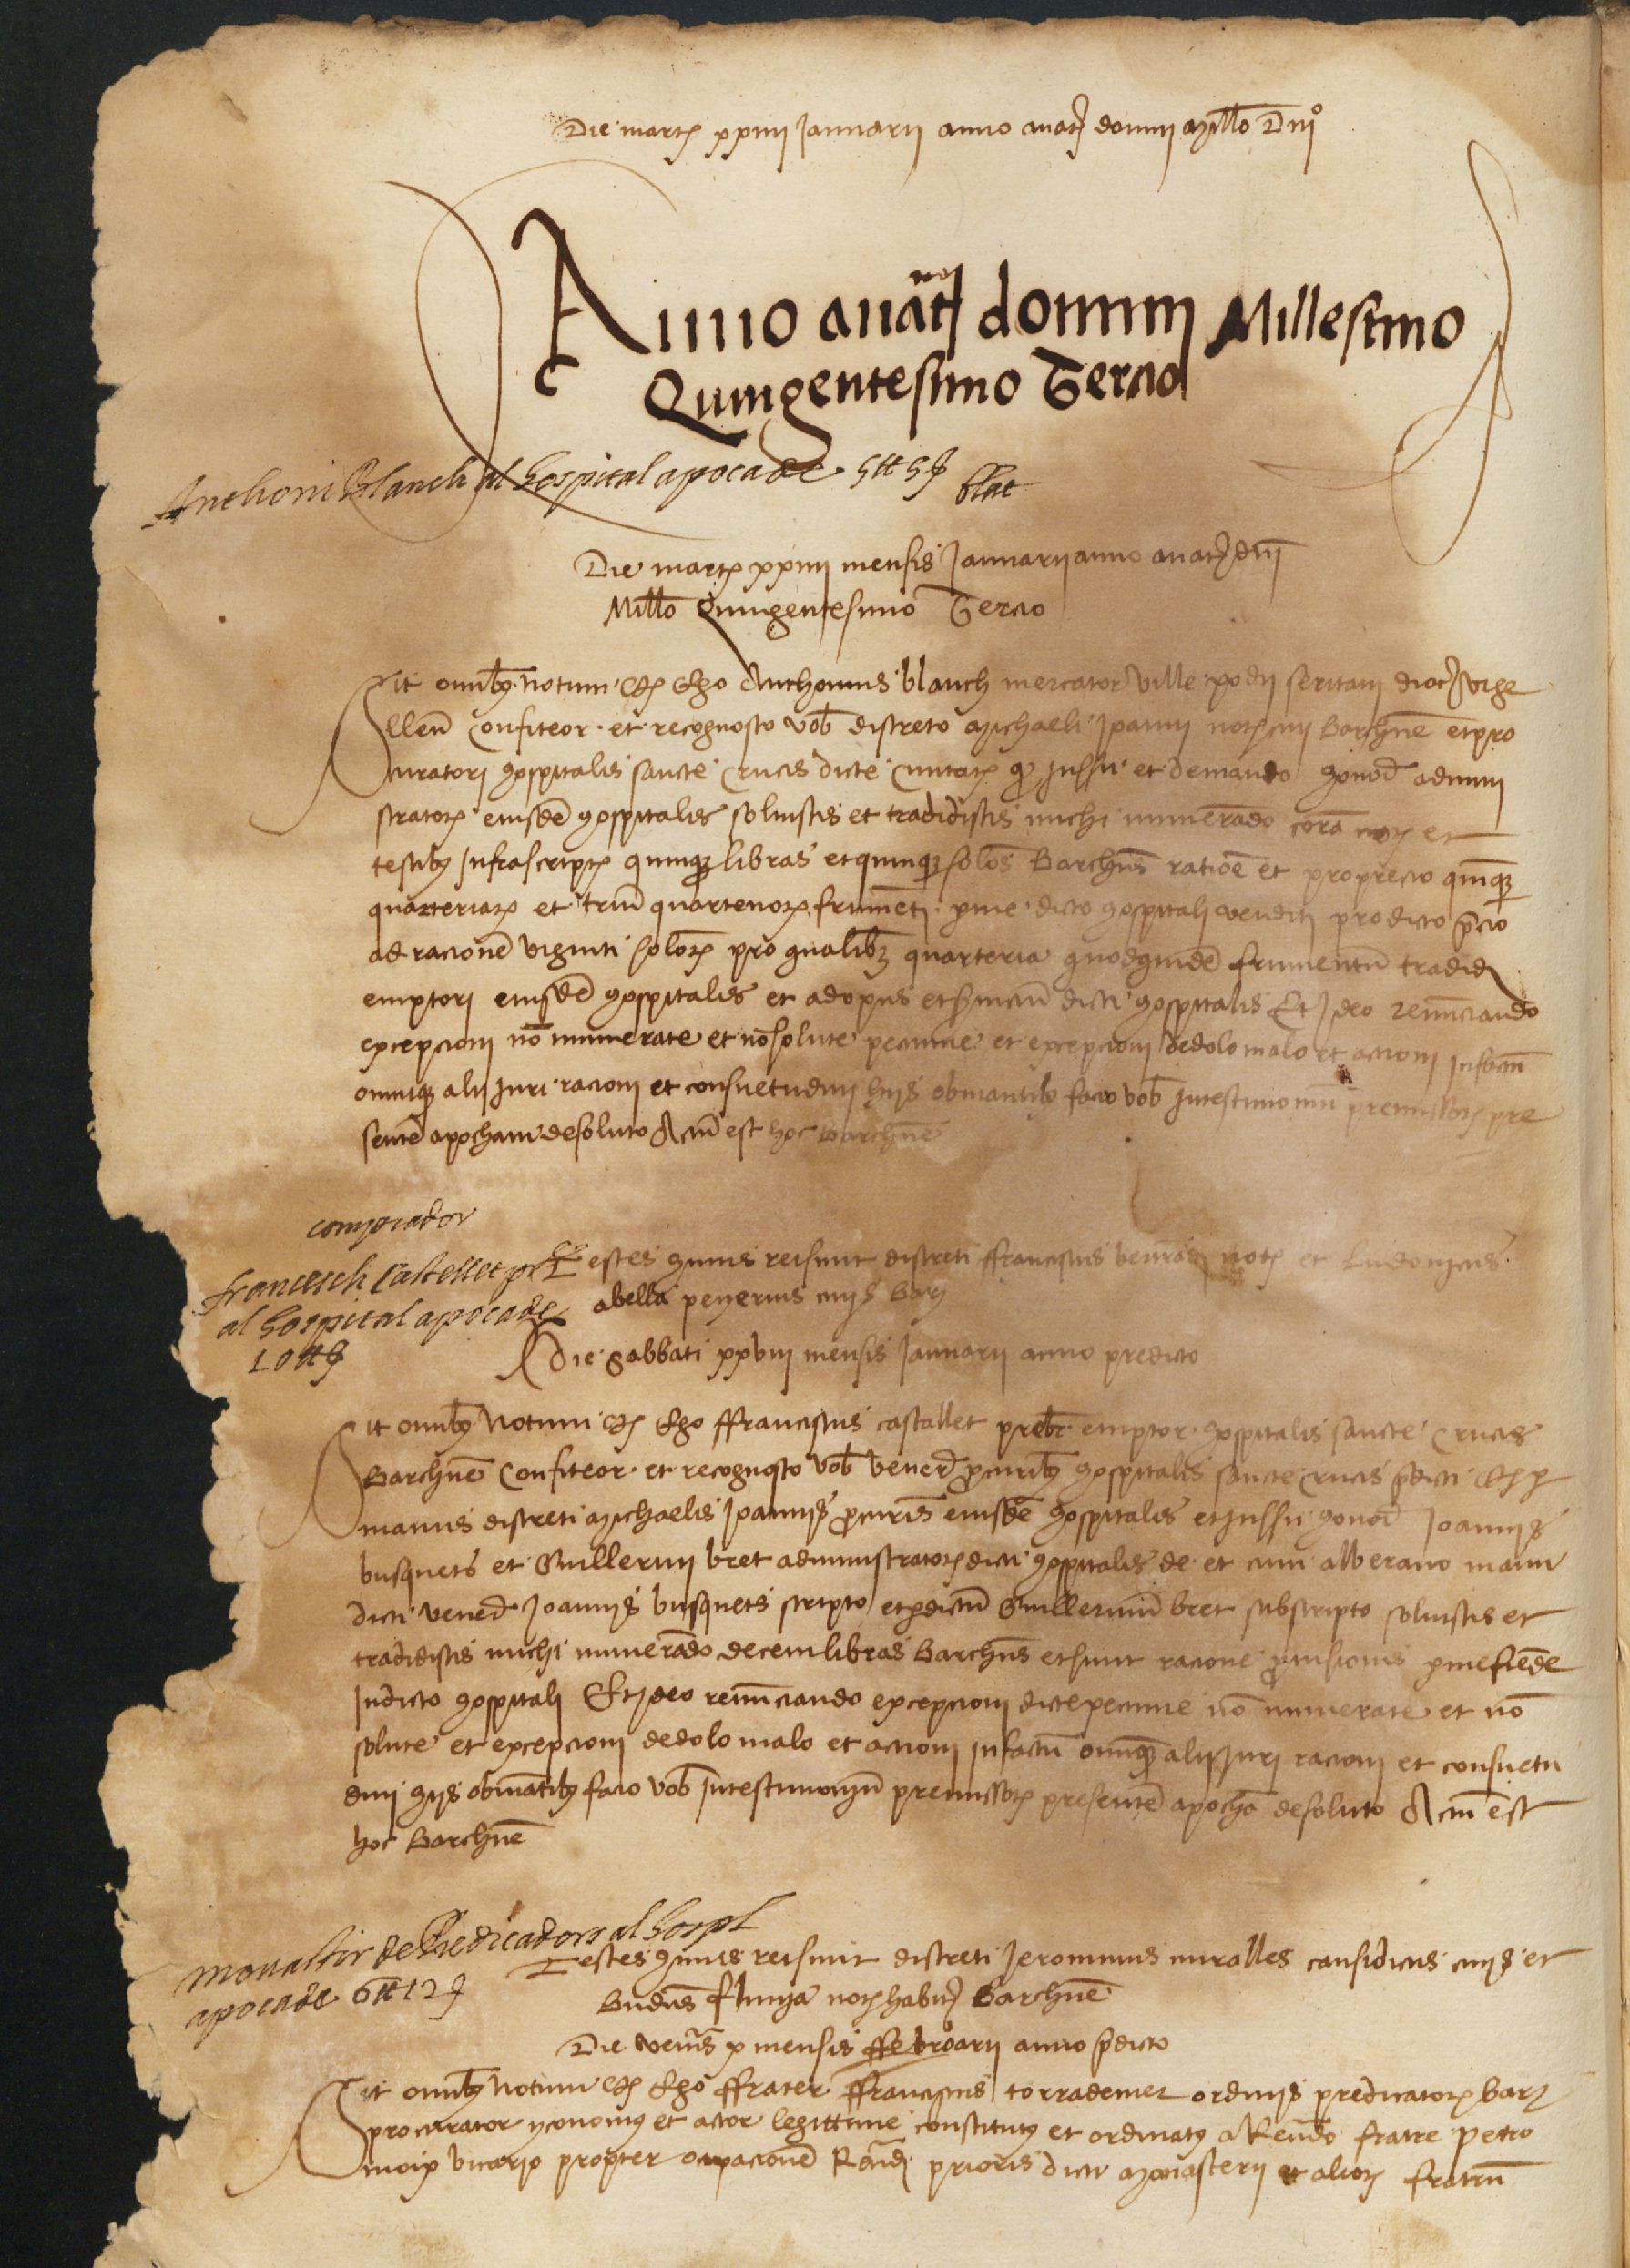 Die martis xxiiii Januarii anno a nat domini Millo Diiiº
Anno a natꝭ domini Millesimo
Quingentesimo Tercio
Anthoni Blanch al hospital apoca de 5 ₶ 5 ß blat
Die martis xxiiii mensis Januarii anno a natꝭ dni
Millo Quingentesimo Tercio
Sit omnibꝰ notum qꝫ Ego Anthonius blanch mercator ville podii seritani dioc Urge
llen̄ Confiteor et recognosco vob̄ discreto Michaeli Joanni notͬ civi Barchn̄e et pro
curatori hospitalis sancte Crucis dicte Civitatꝭ qꝫ jussu et de mando honoꝝ admini
stratoꝝ eiusdē hospitalis solvistis et tradidistis michi numerādo corā notͦ et
testibꝰ infrascriptis quinqꝫ libras et quinqꝫ solos Barchn̄s ratiōe et pro precio quinqꝫ
quarteriaꝝ et triū quartenoꝝ frumēti per me dicto hospitali venditi pro dicto p̄cio
ad racionē viginti soloꝝ pro qualibꝫ quarteria quodquidē frumentū tradidi
emptori eiusdē hospitalis et ad opus et serviciū dicti hospitalis Et Ideo renūciando
excepcioni nō numerate et nō solute pecunie et excepcioni de dolo malo et actioni in factū
omniqꝫ alii juri racioni et consuetudini hiis obviantibꝰ facio vob̄ in testimonium premissoꝝ pre
sentē apocham de soluto Actū est hoc Barchn̄e
comprador
Francesch Castellet pr̄e
al hospital apoca de
10 ₶ ß
Testes huius rei sunt discreti ffranciscus notͬ et Ludovicus
abella peyerius civis Barͬ
Die Sabbati xxviii mensis Januarii anno predicto
Sit omnibꝰ Notum qꝫ Ego ffranciscus castallet prebr̄ emptor hospitalis sancte Crucis
Barchn̄e Confiteor et recognosco vob̄ venerꝭ p̄curibꝰ hospitalis sancte crucis p̄dicti qꝫ per
manus discreti Michaelis Joannis p̄curis eiusdē hospitalis et jussu honoꝝ Joannis
busquets et Guillermi bret administratoꝝ dicti hospitalis de et cum alberano manu
dicti venerꝭ Joannis busquets scripto et per dictū Guillermū bret subscripto solvistis et
tradidistis michi numerādo decem libras Barchn̄s et sunt racione p̄visionis per me fiēde
in dicto hospitali Et ideo renūciando excepcioni dicte pecunie nō numerate et nō
solute et excepcioni de dolo malo et actioni in factū omniqꝫ alii juri racioni et consuetu
dini hiis obviātibꝰ facio vob̄ in testimoniū premissoꝝ presentē apochā de soluto Actū est
hoc Barchn̄e
Monastir de Predicadors al hospl
apoca de 6 ₶ 12 ß
Testes huius rei sunt discreti Jeronimus miralles causidicus civis et
notͬ habitͬ Barchn̄e
Die ven̄is x mensis ffebroarii anno p̄dicto
Sit omnibꝰ Notum qꝫ Ego ffrater ffranciscus torrademer ordinis predicatoꝝ Barͬ
procurator yconomꝰ et actor legittime constitutꝰ et ordinatꝰ a Rendo fratre petro
moix vicario propter ocupacionē Randi prioris dicti Monasterii et alioꝝ fratrū